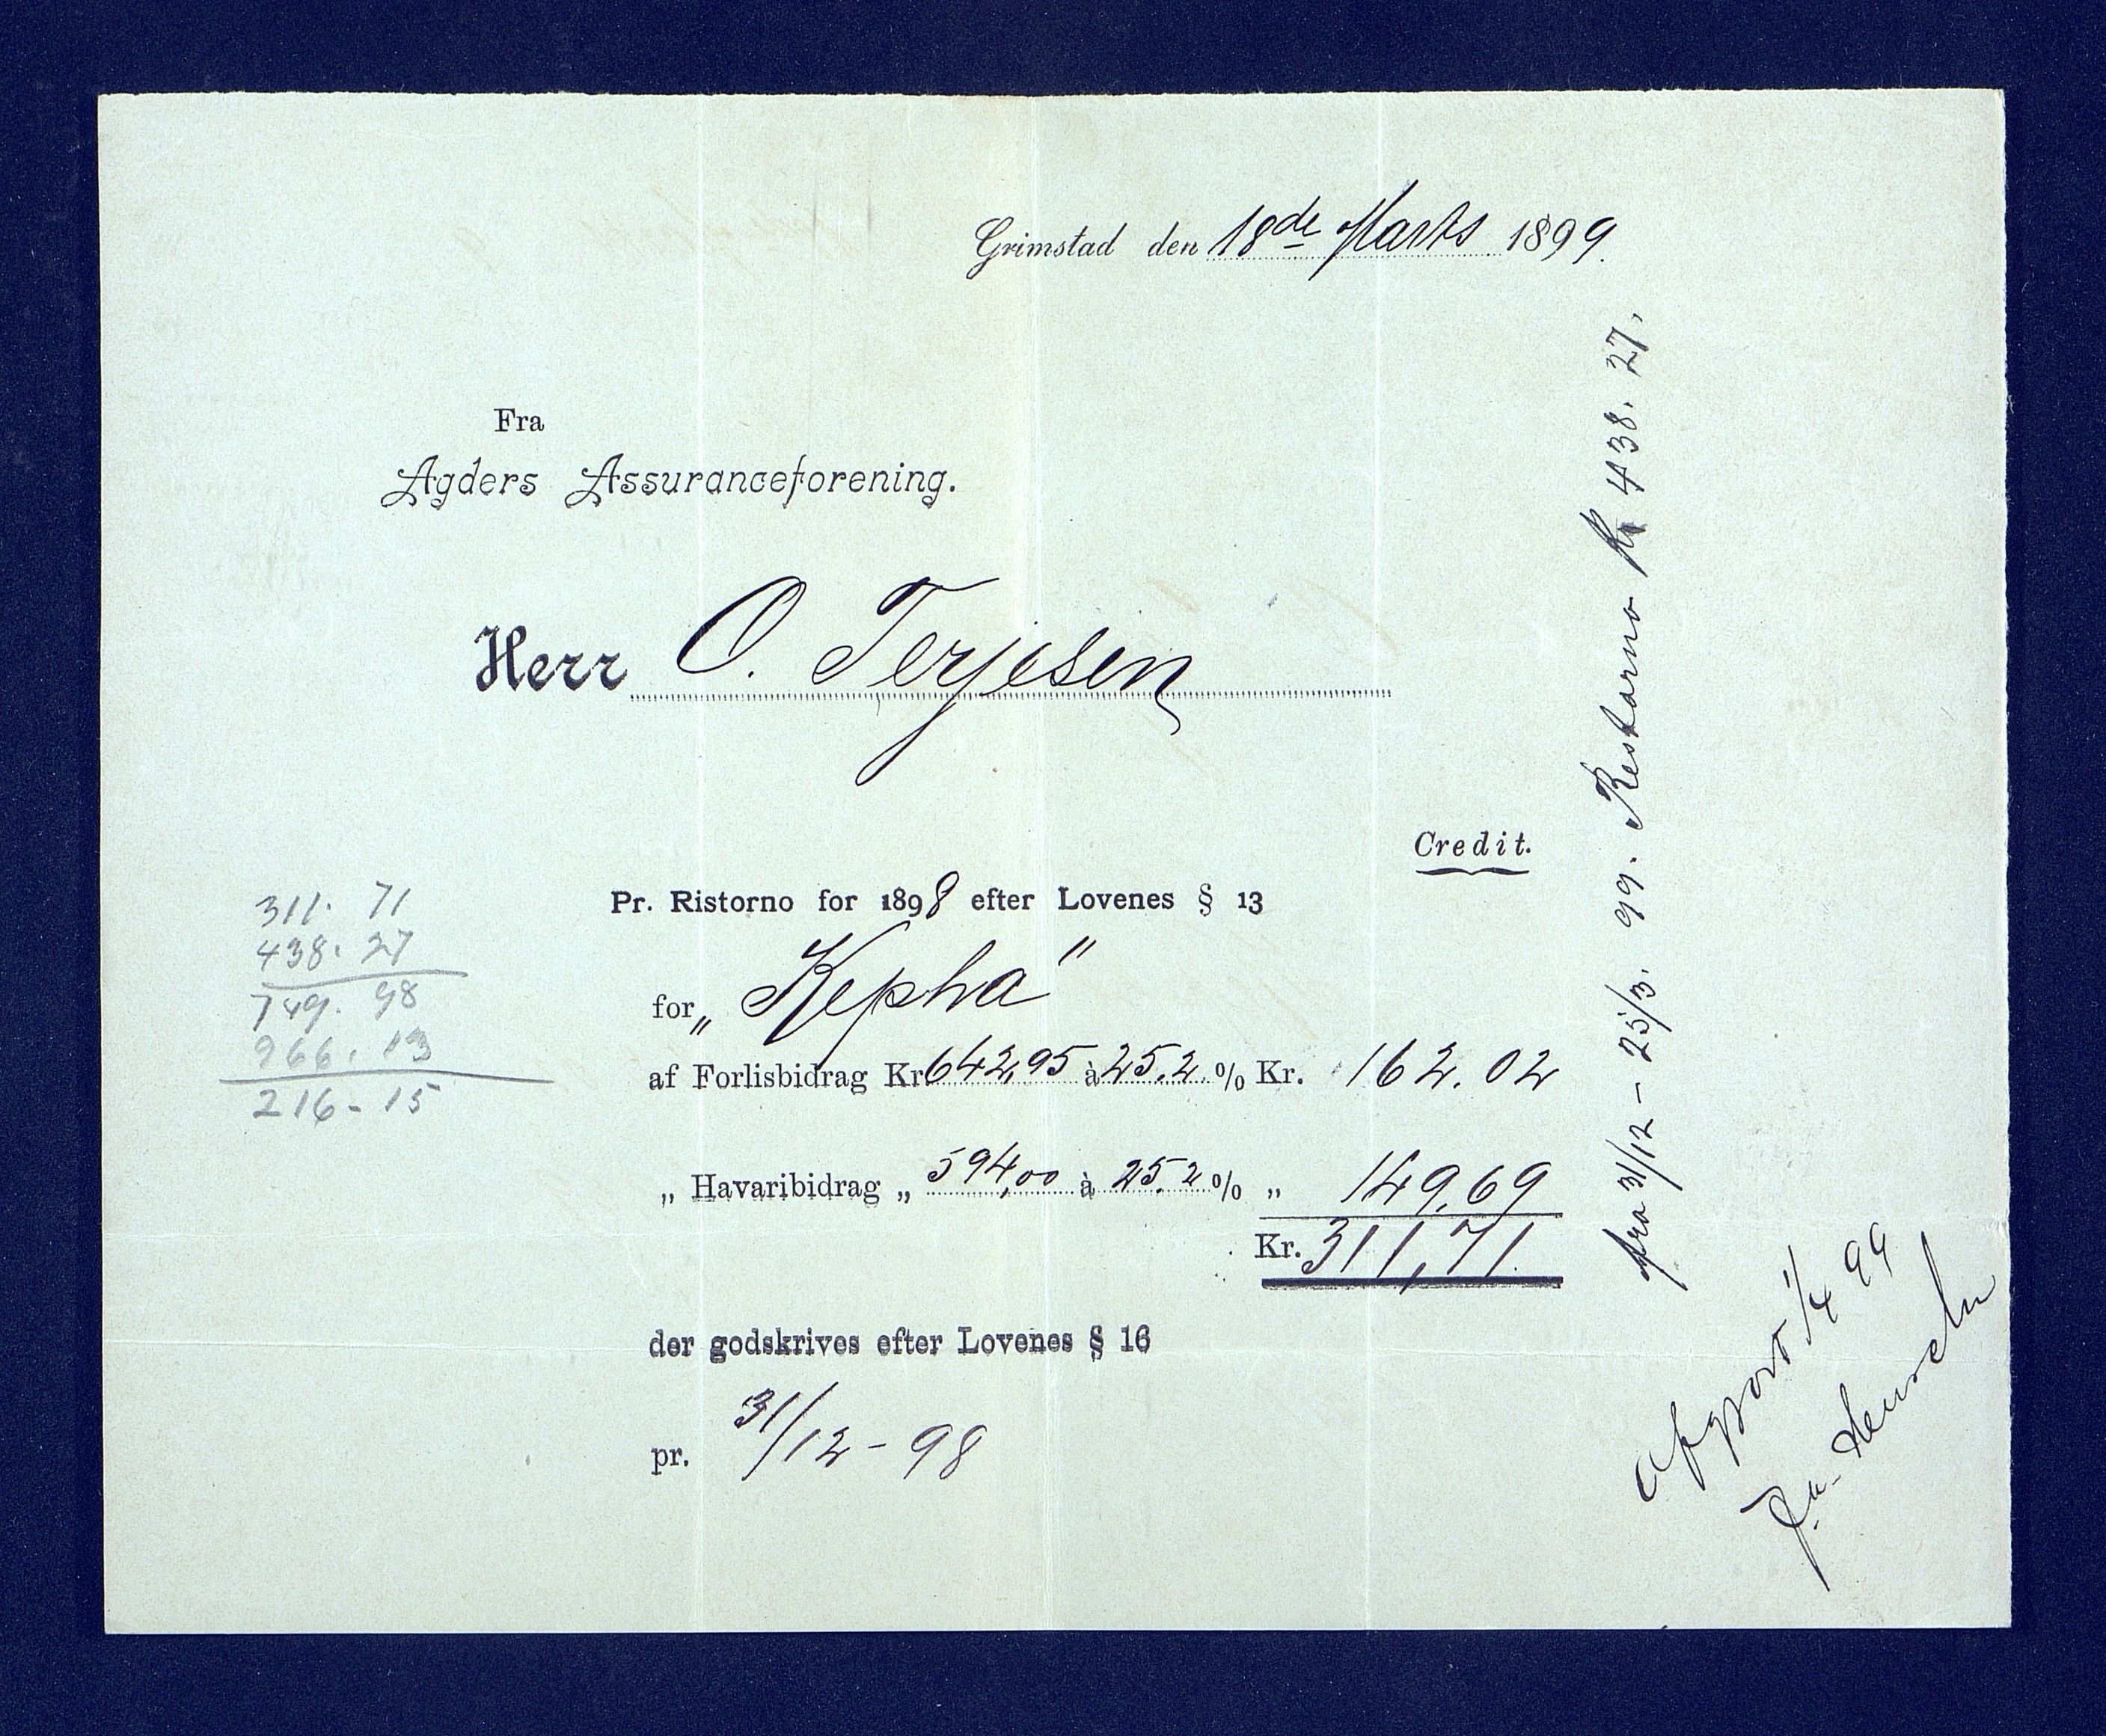 Grimstad den 18de Marts 1899.
Fra
Agders Assuranceforening.
Herr O. Terjesen
Credit.
Pr. Ristorno for 1898 efter Lovenes § 13
for „ Kepha"
af Forlisbidrag Kr 642,95 à 25.2 % Kr. 162.02
„ Havaribidrag „ 594,00 à 25.2 % „ 149,69
Kr. 311,71.
der godskrives efter Lovenes § 16
pr. 31/12 - 98
311. 71
438. 27
749. 98
966. 13
216 - 15
fra 31/12 - 25/3. 99. Restorno Kr 438. 27.
Afgjort 1/4 99